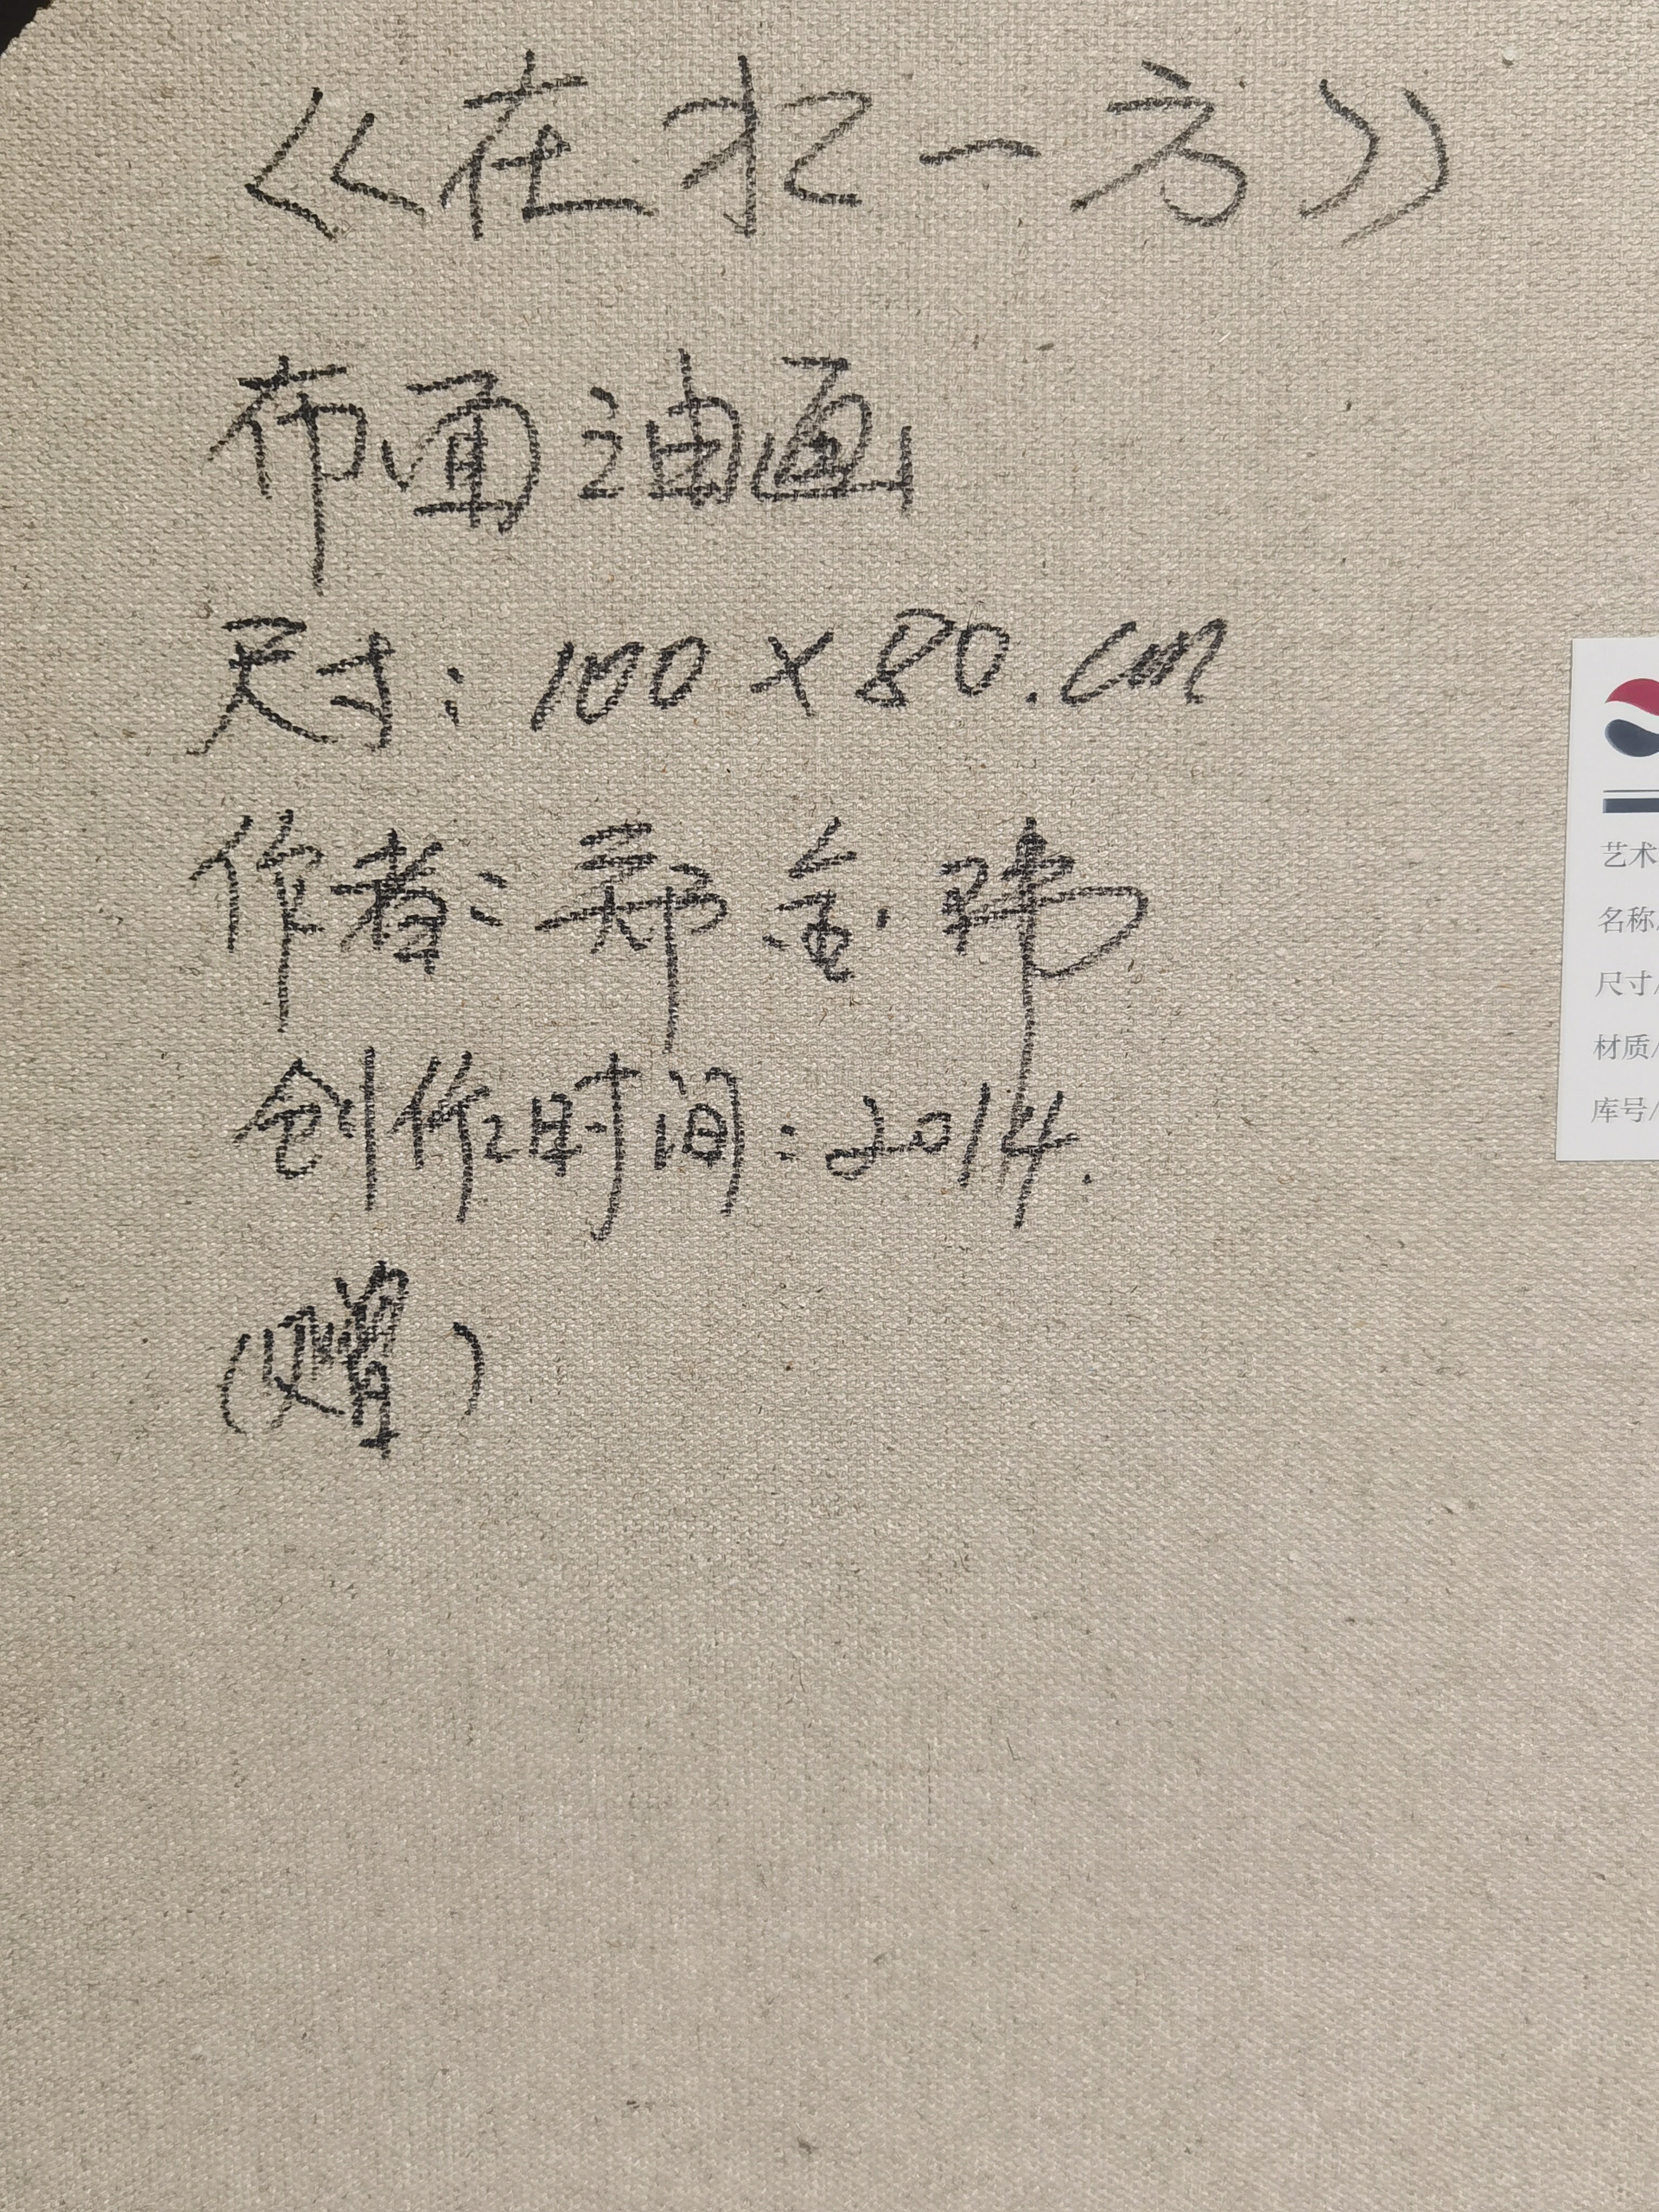 《在水一方》
布面油画
尺寸：100×80.cm
作者：郑金玮
创作时间：2014.
(赠)
艺术
名称/
尺寸/
材质/
库号/